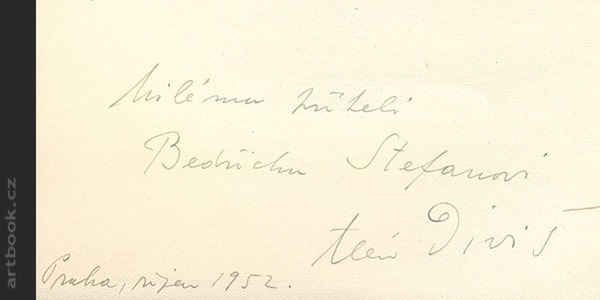 Milému příteli
Bedřichu Stefanovi
Alén Diviš
Praha, říjen 1952.
artbook.cz